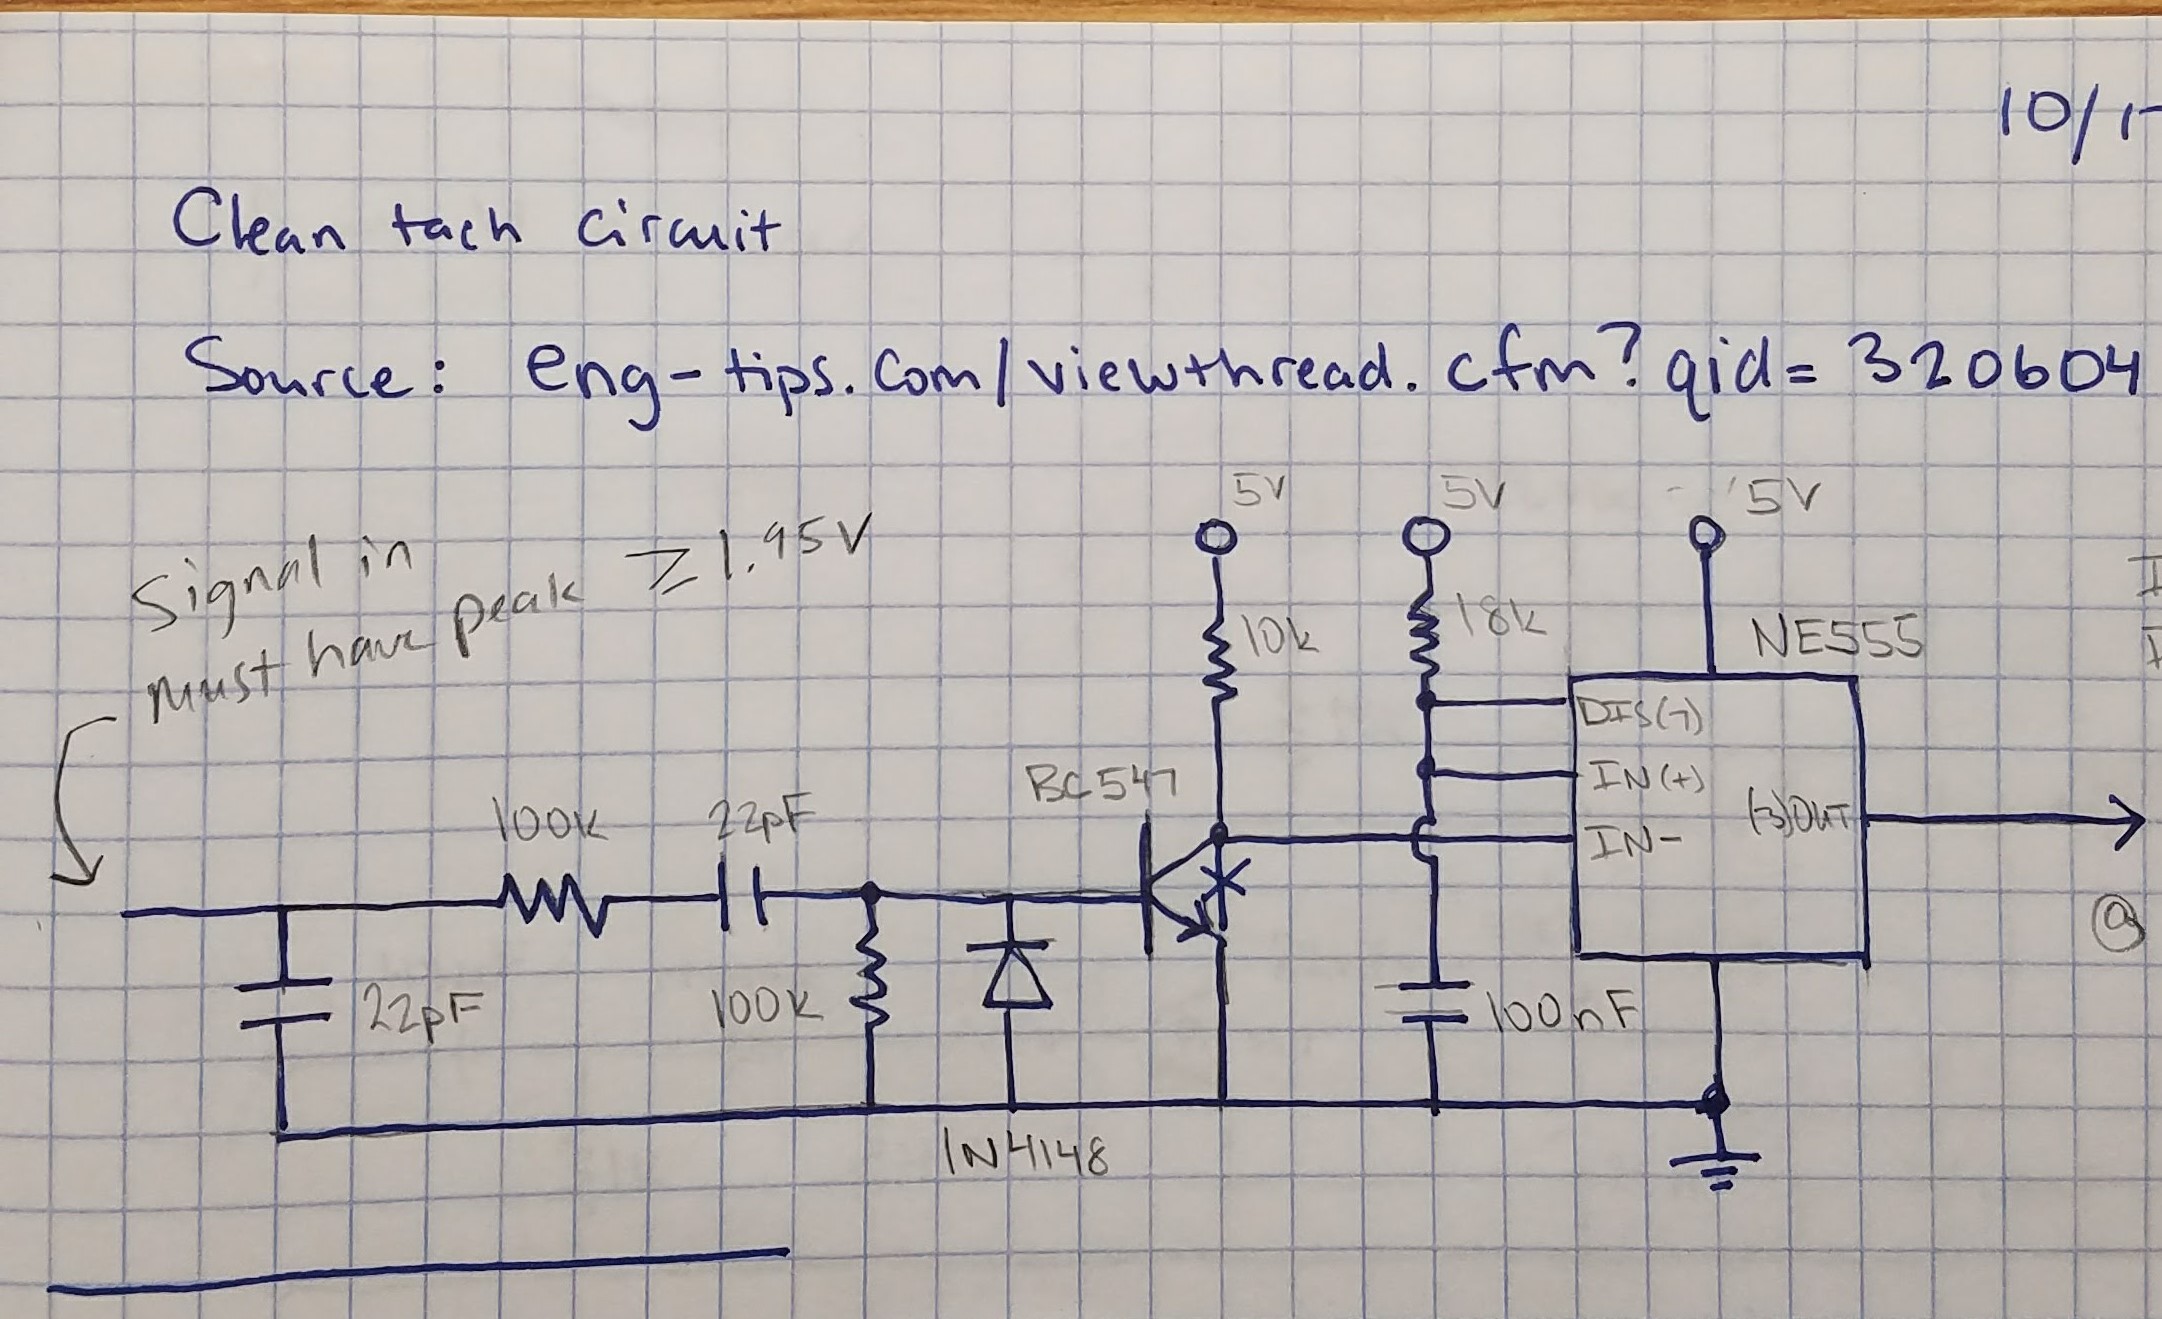 10/1
Clean tach circuit
Source: eng-tips.com/viewthread.cfm?qid=320604
Signal in
must have peak ≥1.95V
5V
5V
5V
10k
18k
NE555
DIS(7)
IN(+)
IN-
(3)OUT
BC547
100k
22pF
22pF
100k
100nF
1N4148